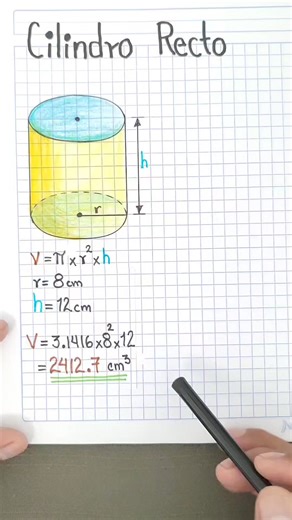 Cilindro Recto
h
r
V=π×r²×h
r=8cm
h=12cm
V=3.1416×8²×12
=2412.7 cm³